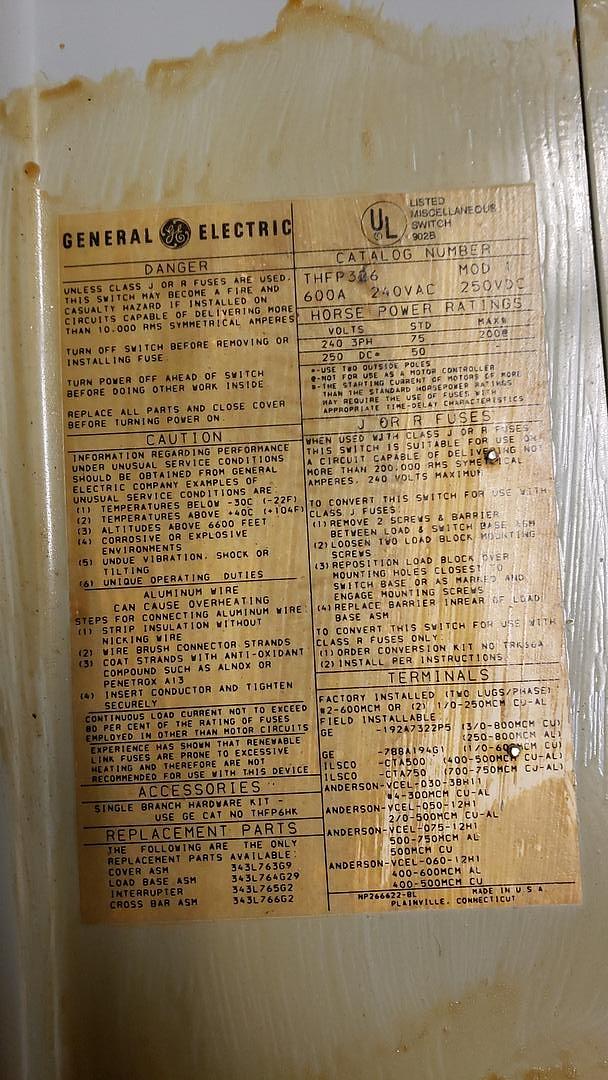 GENERAL GE ELECTRIC
DANGER
UNLESS CLASS J OR R FUSES ARE USED,
THIS SWITCH MAY BECOME A FIRE AND
CASUALTY HAZARD IF INSTALLED ON
CIRCUITS CAPABLE OF DELIVERING MORE
THAN 10,000 RMS SYMMETRICAL AMPERES
TURN OFF SWITCH BEFORE REMOVING OR
INSTALLING FUSE.
TURN POWER OFF AHEAD OF SWITCH
BEFORE DOING OTHER WORK INSIDE
REPLACE ALL PARTS AND CLOSE COVER
BEFORE TURNING POWER ON.
CAUTION
INFORMATION REGARDING PERFORMANCE
UNDER UNUSUAL SERVICE CONDITIONS
SHOULD BE OBTAINED FROM GENERAL
ELECTRIC COMPANY EXAMPLES OF
UNUSUAL SERVICE CONDITIONS ARE
(1) TEMPERATURES BELOW -30C (-22F)
(2) TEMPERATURES ABOVE +40C (+104F)
(3) ALTITUDES ABOVE 6600 FEET
(4) CORROSIVE OR EXPLOSIVE
ENVIRONMENTS
(5) UNDUE VIBRATION, SHOCK OR
TILTING
(6) UNIQUE OPERATING DUTIES
ALUMINUM WIRE
CAN CAUSE OVERHEATING
STEPS FOR CONNECTING ALUMINUM WIRE:
(1) STRIP INSULATION WITHOUT
NICKING WIRE
(2) WIRE BRUSH CONNECTOR STRANDS
(3) COAT STRANDS WITH ANTI-OXIDANT
COMPOUND SUCH AS ALNOX OR
PENETROX A13
(4) INSERT CONDUCTOR AND TIGHTEN
SECURELY
CONTINUOUS LOAD CURRENT NOT TO EXCEED
80 PER CENT OF THE RATING OF FUSES
EMPLOYED IN OTHER THAN MOTOR CIRCUITS
EXPERIENCE HAS SHOWN THAT RENEWABLE
LINK FUSES ARE PRONE TO EXCESSIVE
HEATING AND THEREFORE ARE NOT
RECOMMENDED FOR USE WITH THIS DEVICE
ACCESSORIES
SINGLE BRANCH HARDWARE KIT -
USE GE CAT NO THFP6HK
REPLACEMENT PARTS
THE FOLLOWING ARE THE ONLY
REPLACEMENT PARTS AVAILABLE:
COVER ASM 343L763G9
LOAD BASE ASM 343L764G29
INTERRUPTER 343L765G2
CROSS BAR ASM 343L766G2
UL
LISTED
MISCELLANEOUS
SWITCH
902B
CATALOG NUMBER
THFP326 MOD 1
600A 240VAC 250VDC
HORSE POWER RATINGS
VOLTS STD MAX®
240 3PH 75 200@
250 DC* 50
*-USE TWO OUTSIDE POLES
@-NOT FOR USE AS A MOTOR CONTROLLER
®-THE STARTING CURRENT OF MOTORS OF MORE
THAN THE STANDARD HORSEPOWER RATINGS
MAY REQUIRE THE USE OF FUSES WITH
APPROPRIATE TIME-DELAY CHARACTERISTICS
J OR R FUSES
WHEN USED WITH CLASS J OR R FUSES
THIS SWITCH IS SUITABLE FOR USE ON
A CIRCUIT CAPABLE OF DELIVERING NOT
MORE THAN 200,000 RMS SYMETRICAL
AMPERES, 240 VOLTS MAXIMUM
TO CONVERT THIS SWITCH FOR USE WITH
CLASS J FUSES
(1) REMOVE 2 SCREWS & BARRIER
BETWEEN LOAD & SWITCH BASE ASM
(2) LOOSEN TWO LOAD BLOCK MOUNTING
SCREWS
(3) REPOSITION LOAD BLOCK OVER
MOUNTING HOLES CLOSEST TO
SWITCH BASE OR AS MARKED AND
ENGAGE MOUNTING SCREWS
(4) REPLACE BARRIER INREAR OF LOAD
BASE ASM
TO CONVERT THIS SWITCH FOR USE WITH
CLASS R FUSES ONLY:
(1) ORDER CONVERSION KIT NO TRKS6A
(2) INSTALL PER INSTRUCTIONS
TERMINALS
FACTORY INSTALLED (TWO LUGS/PHASE)
#2-600MCM OR (2) 1/0-250MCM CU-AL
FIELD INSTALLABLE
GE -192A7322P5 (3/0-800MCM CU)
(250-800MCM AL)
GE -788A194G1 (1/0-600MCM CU)
ILSCO -CTA500 (400-500MCM CU-AL)
ILSCO -CTA750 (700-750MCM CU-AL)
ANDERSON-VCEL-030-38H11
#4-300MCM CU-AL
ANDERSON-VCEL-050-12H1
2/0-500MCM CU-AL
ANDERSON-VCEL-075-12H1
500-750MCM AL
500MCM CU
ANDERSON-VCEL-060-12H1
400-600MCM AL
400-500MCM CU
NP266622-BL MADE IN U.S.A.
PLAINVILLE, CONNECTICUT